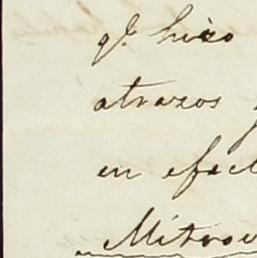 qe. hizo
atrazos
en efec
Mitrov